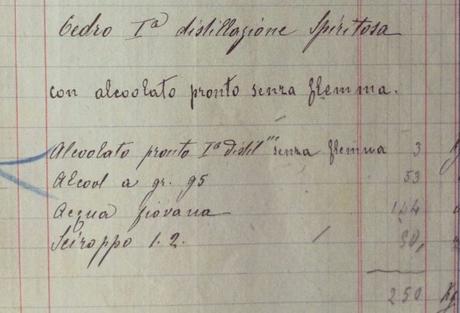 Cedro Iª distillazione Spiritosa
con alcoolato pronto senza flemma.
Alcoolato pronto Iª distilne senza flemma 3 Kg
Alcool a gr. 95 53
Acqua piovana 104
Sciroppo 1. 2. 90,
250 Kg